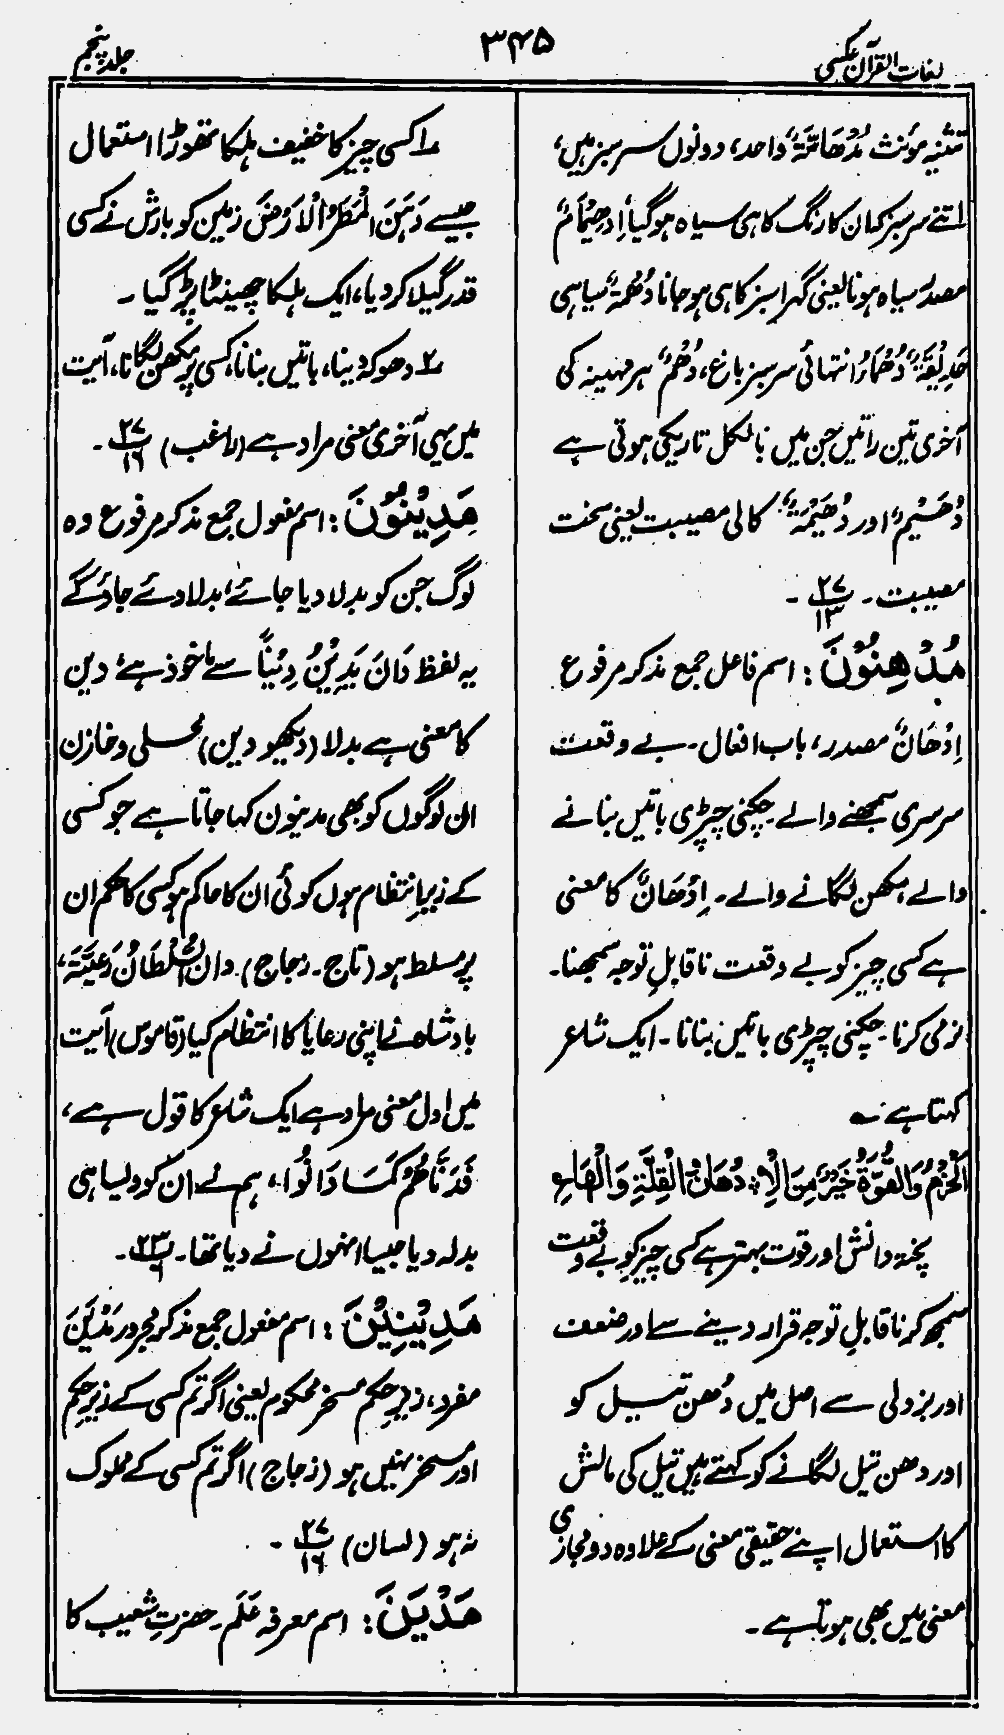 لغات القرآن عکسی
۳۴۵
جلد پنجم
تثنیہ مؤنث مُدْهَامَّةٌ واحد، دونوں سرسبز ہیں،
اتنے سرسبز کہ ان کا رنگ کاہی سیاہ ہو گیا اِدْهِيْمَامٌ
مصدر سیاہ ہونا یعنی گہرا سبز کاہی ہو جانا دُهْمَةٌ سیاہی
حَدِيْقَةٌ دُهْمَاءُ انتہائی سرسبز باغ، دُهْمٌ ہر مہینہ کی
آخری تین راتیں جن میں بالکل تاریکی ہوتی ہے
دُهَيْمٌ اور دُهَيْمَةٌ کالی مصیبت یعنی سخت
مصیبت۔ ۲۷/۱۳ ۔
مُدْهِنُوْنَ : اسم فاعل جمع مذکر مرفوع
اِدْهَانٌ مصدر، باب افعال۔ بے وقعت
سرسری سمجھنے والے چکنی چپڑی باتیں بنانے
والے، مکھن لگانے والے۔ اِدْهَانٌ کا معنی
ہے کسی چیز کو بے وقعت ناقابلِ توجہ سمجھنا۔
نرمی کرنا۔ چکنی چپڑی باتیں بنانا۔ ایک شاعر
کہتا ہے ؎
اَلْحَزْمُ وَالْقُوَّةُ خَيْرٌ مِنَ الْاِدْهَانِ الْقِلَّةِ وَالْهَاعِ
پختہ دانش اور قوت بہتر ہے کسی چیز کو بے وقعت
سمجھ کر ناقابلِ توجہ قرار دینے سے اور ضعف
اور بزدلی سے اصل میں دُهن تیل کو
اور دھن تیل لگانے کو کہتے ہیں تیل کی مالش
کا استعمال اپنے حقیقی معنی کے علاوہ دو مجازی
معنی میں بھی ہوتا ہے۔
۱؎ کسی چیز کا خفیف ہلکا تھوڑا استعمال
جیسے دَهَنَ الْمَطَرُ الْاَرْضَ زمین کو بارش نے کسی
قدر گیلا کر دیا، ایک ہلکا چھینٹا پڑ گیا۔
۲؎ دھوکہ دینا، باتیں بنانا، کسی پر مکھن لگانا، آیت
میں یہی آخری معنی مراد ہے (راغب) ۲۷/۱۶ ۔
مَدِيْنُوْنَ : اسم مفعول جمع مذکر مرفوع وہ
لوگ جن کو بدلا دیا جائے، بدلا دئے جاؤ گے
یہ لفظ دَانَ يَدِيْنُ دِيْنًا سے ماخوذ ہے، دین
کا معنی ہے بدلا (دیکھو دین) محلی و خازن
ان لوگوں کو بھی مدینون کہا جاتا ہے جو کسی
کے زیر انتظام ہوں کوئی ان کا حاکم ہو کسی کا حکم ان
پر مسلط ہو (تاج۔ زجاج)۔ دان السُّلْطَانُ رَعِيَّتَهٗ،
بادشاہ نے اپنی رعایا کا انتظام کیا (قاموس) آیت
میں اول معنی مراد ہے ایک شاعر کا قول ہے،
فَدِنَّاهُمْ كَمَا دَانُوْا، ہم نے ان کو ویسا ہی
بدلہ دیا جیسا انہوں نے دیا تھا۔ ۲۳/۶ ۔
مَدِيْنِيْنَ : اسم مفعول جمع مذکر مجرور مَدْيَنَ
مفرد، زیرِ حکم مسخر محکوم یعنی اگر تم کسی کے زیرِ حکم
اور مسخر نہیں ہو (زجاج) اگر تم کسی کے مملوک
نہ ہو (لسان) ۲۷/۱۶ ۔
مَدْيَنَ : اسم معرفہ عَلَم۔ حضرتِ شعیب کا